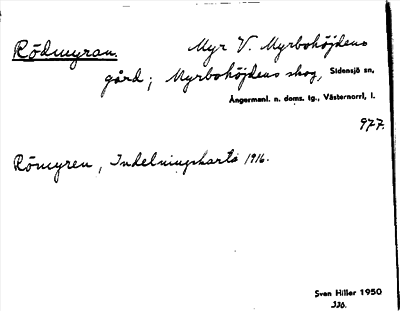 Rödmyran. Myr V. Myrbohöjdens
gård; Myrbohöjdens skog, Sidensjö sn,
Ångermanl. n. doms. tg., Västernorrl, l.
977.
Römyren, Indelningskarta 1916.
Sven Hiller 1950
336.